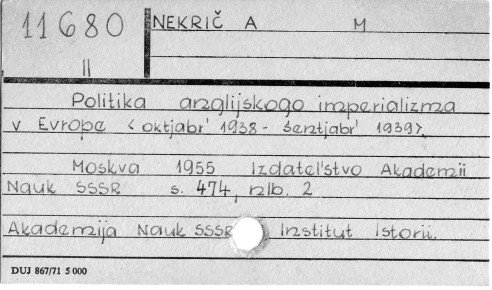 11680
II
NEKRIČ A M
Politika anglijskogo imperializma
v Evrope <oktjabr' 1938 - sentjabr' 1939>.
Moskva 1955 Izdatel'stvo Akademii
Nauk SSSR s. 474, nlb. 2
Akademija Nauk SSSR Institut Istorii.
DUJ 867/71 5 000